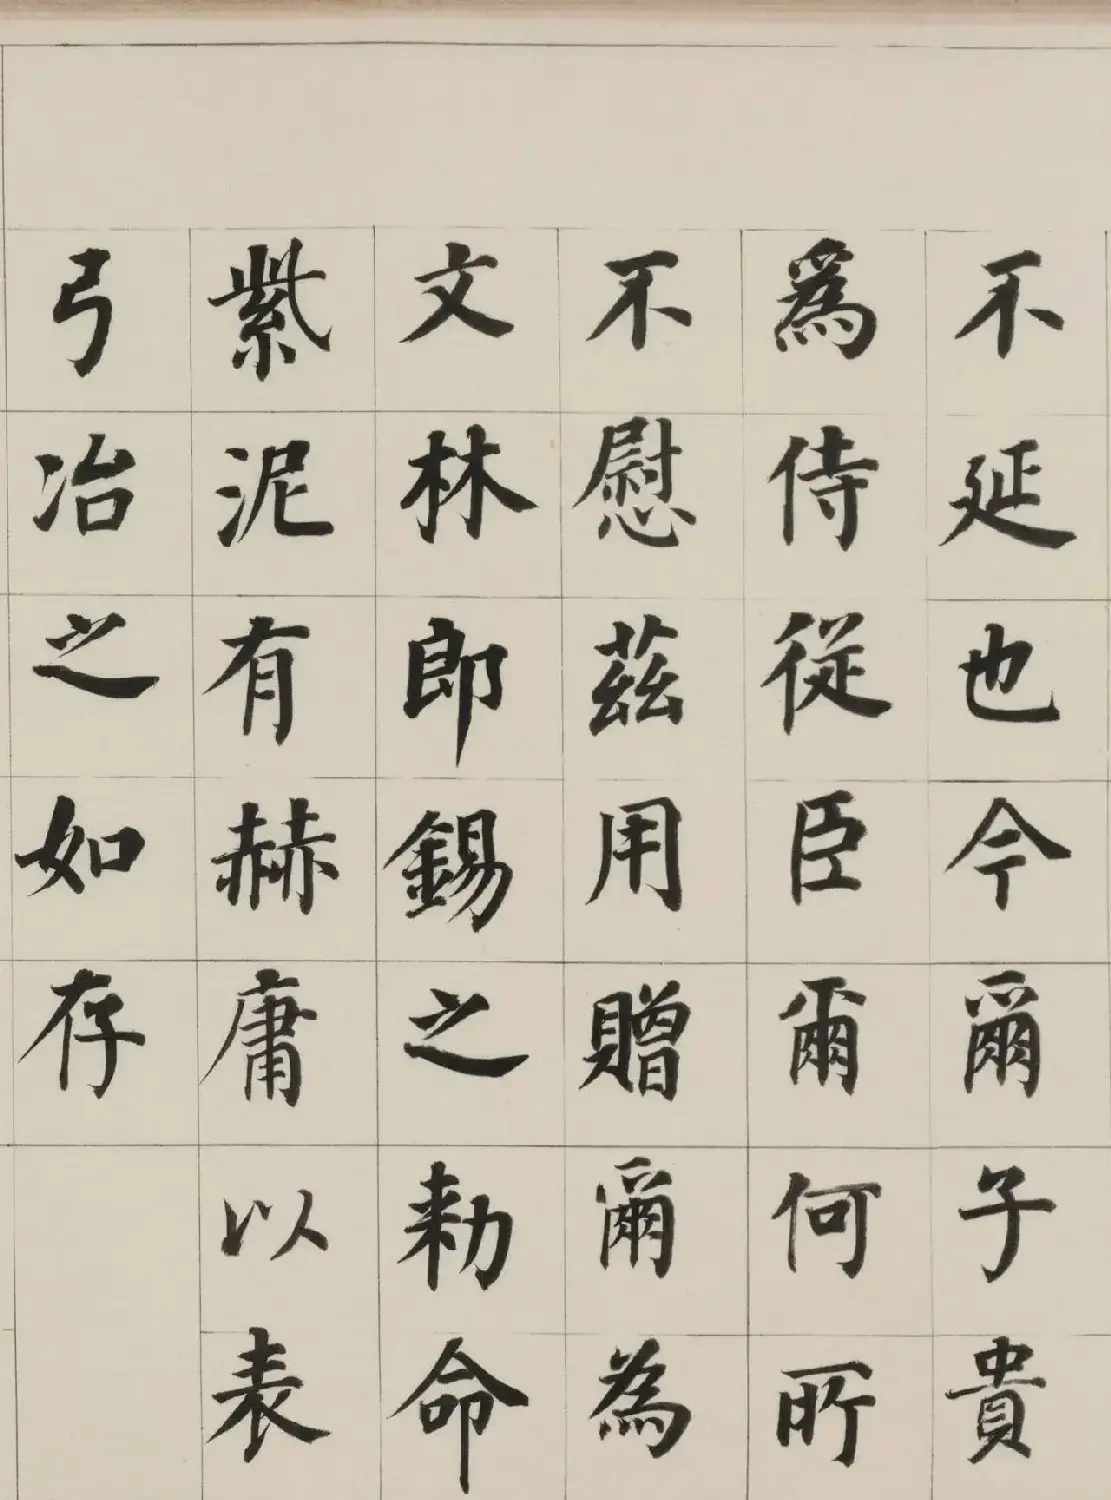 不延也今爾子貴
為侍從臣爾何所
不慰茲用贈爾為
文林郎錫之勅命
紫泥有赫庸以表
弓冶之如存